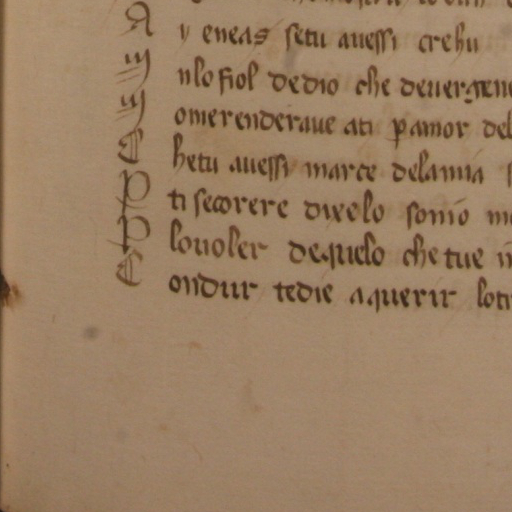 A y eneas setu auessi crehu
nlo fiol dedio che deuergene
omerenderaue ati p amor del
C hetu auessi marce delamia s
P ti secorere dixelo somo me
P louoler dequelo chetue in
C ondur tedie aquerir lotr